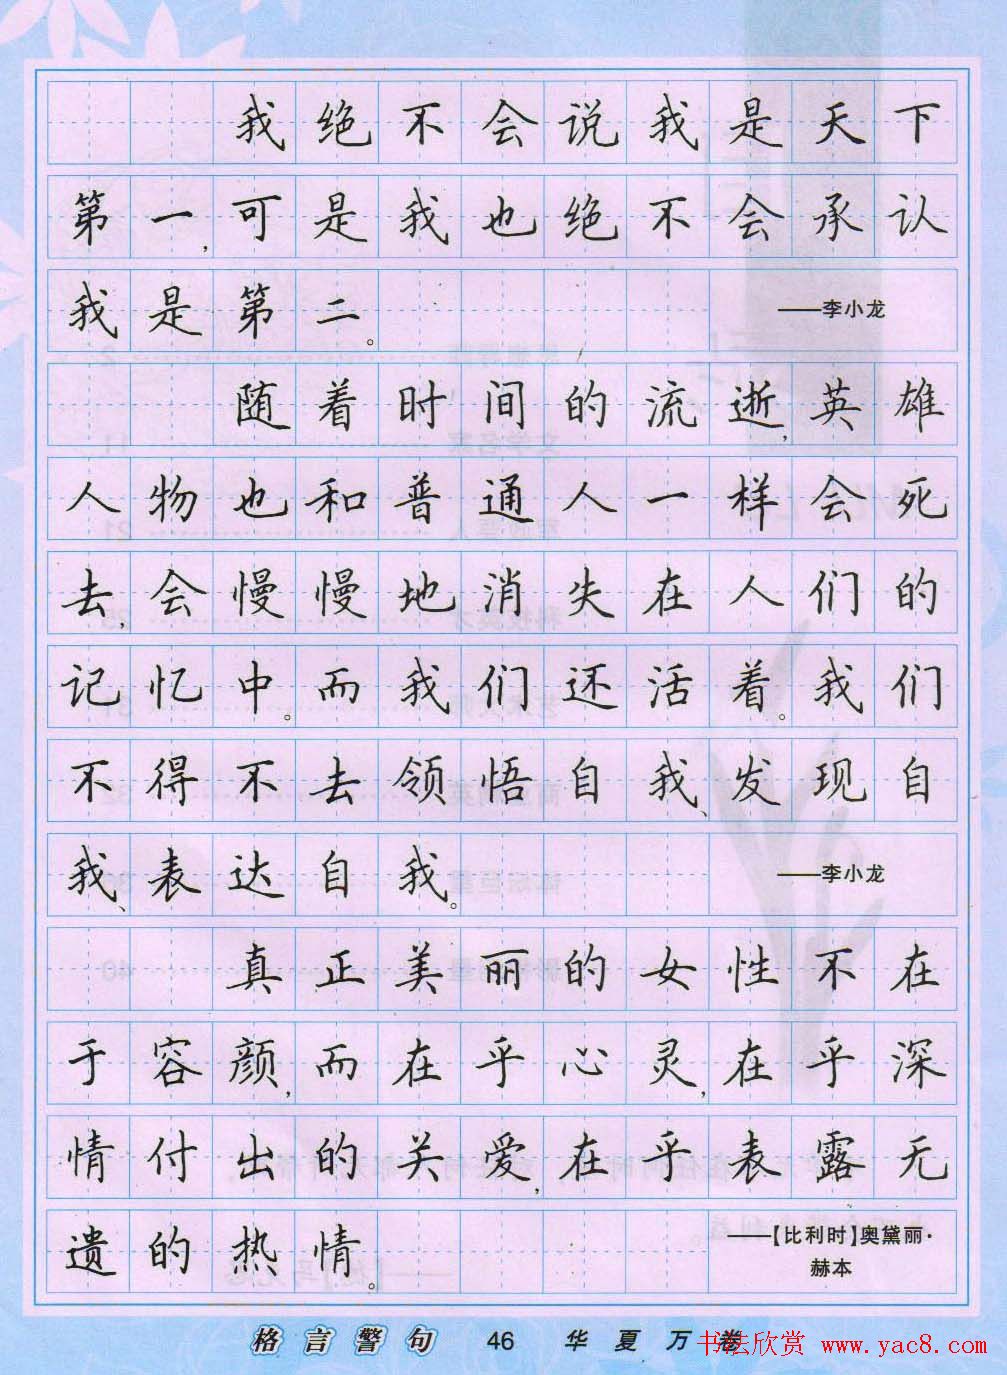 我绝不会说我是天下
第一,可是我也绝不会承认
我是第二。 ——李小龙
随着时间的流逝,英雄
人物也和普通人一样会死
去,会慢慢地消失在人们的
记忆中。而我们还活着。我们
不得不去领悟自我、发现自
我、表达自我。 ——李小龙
真正美丽的女性不在
于容颜,而在乎心灵,在乎深
情付出的关爱,在乎表露无
遗的热情。 ——[比利时]奥黛丽·
赫本
格言警句 46 华夏万卷
书法欣赏 www.yac8.com